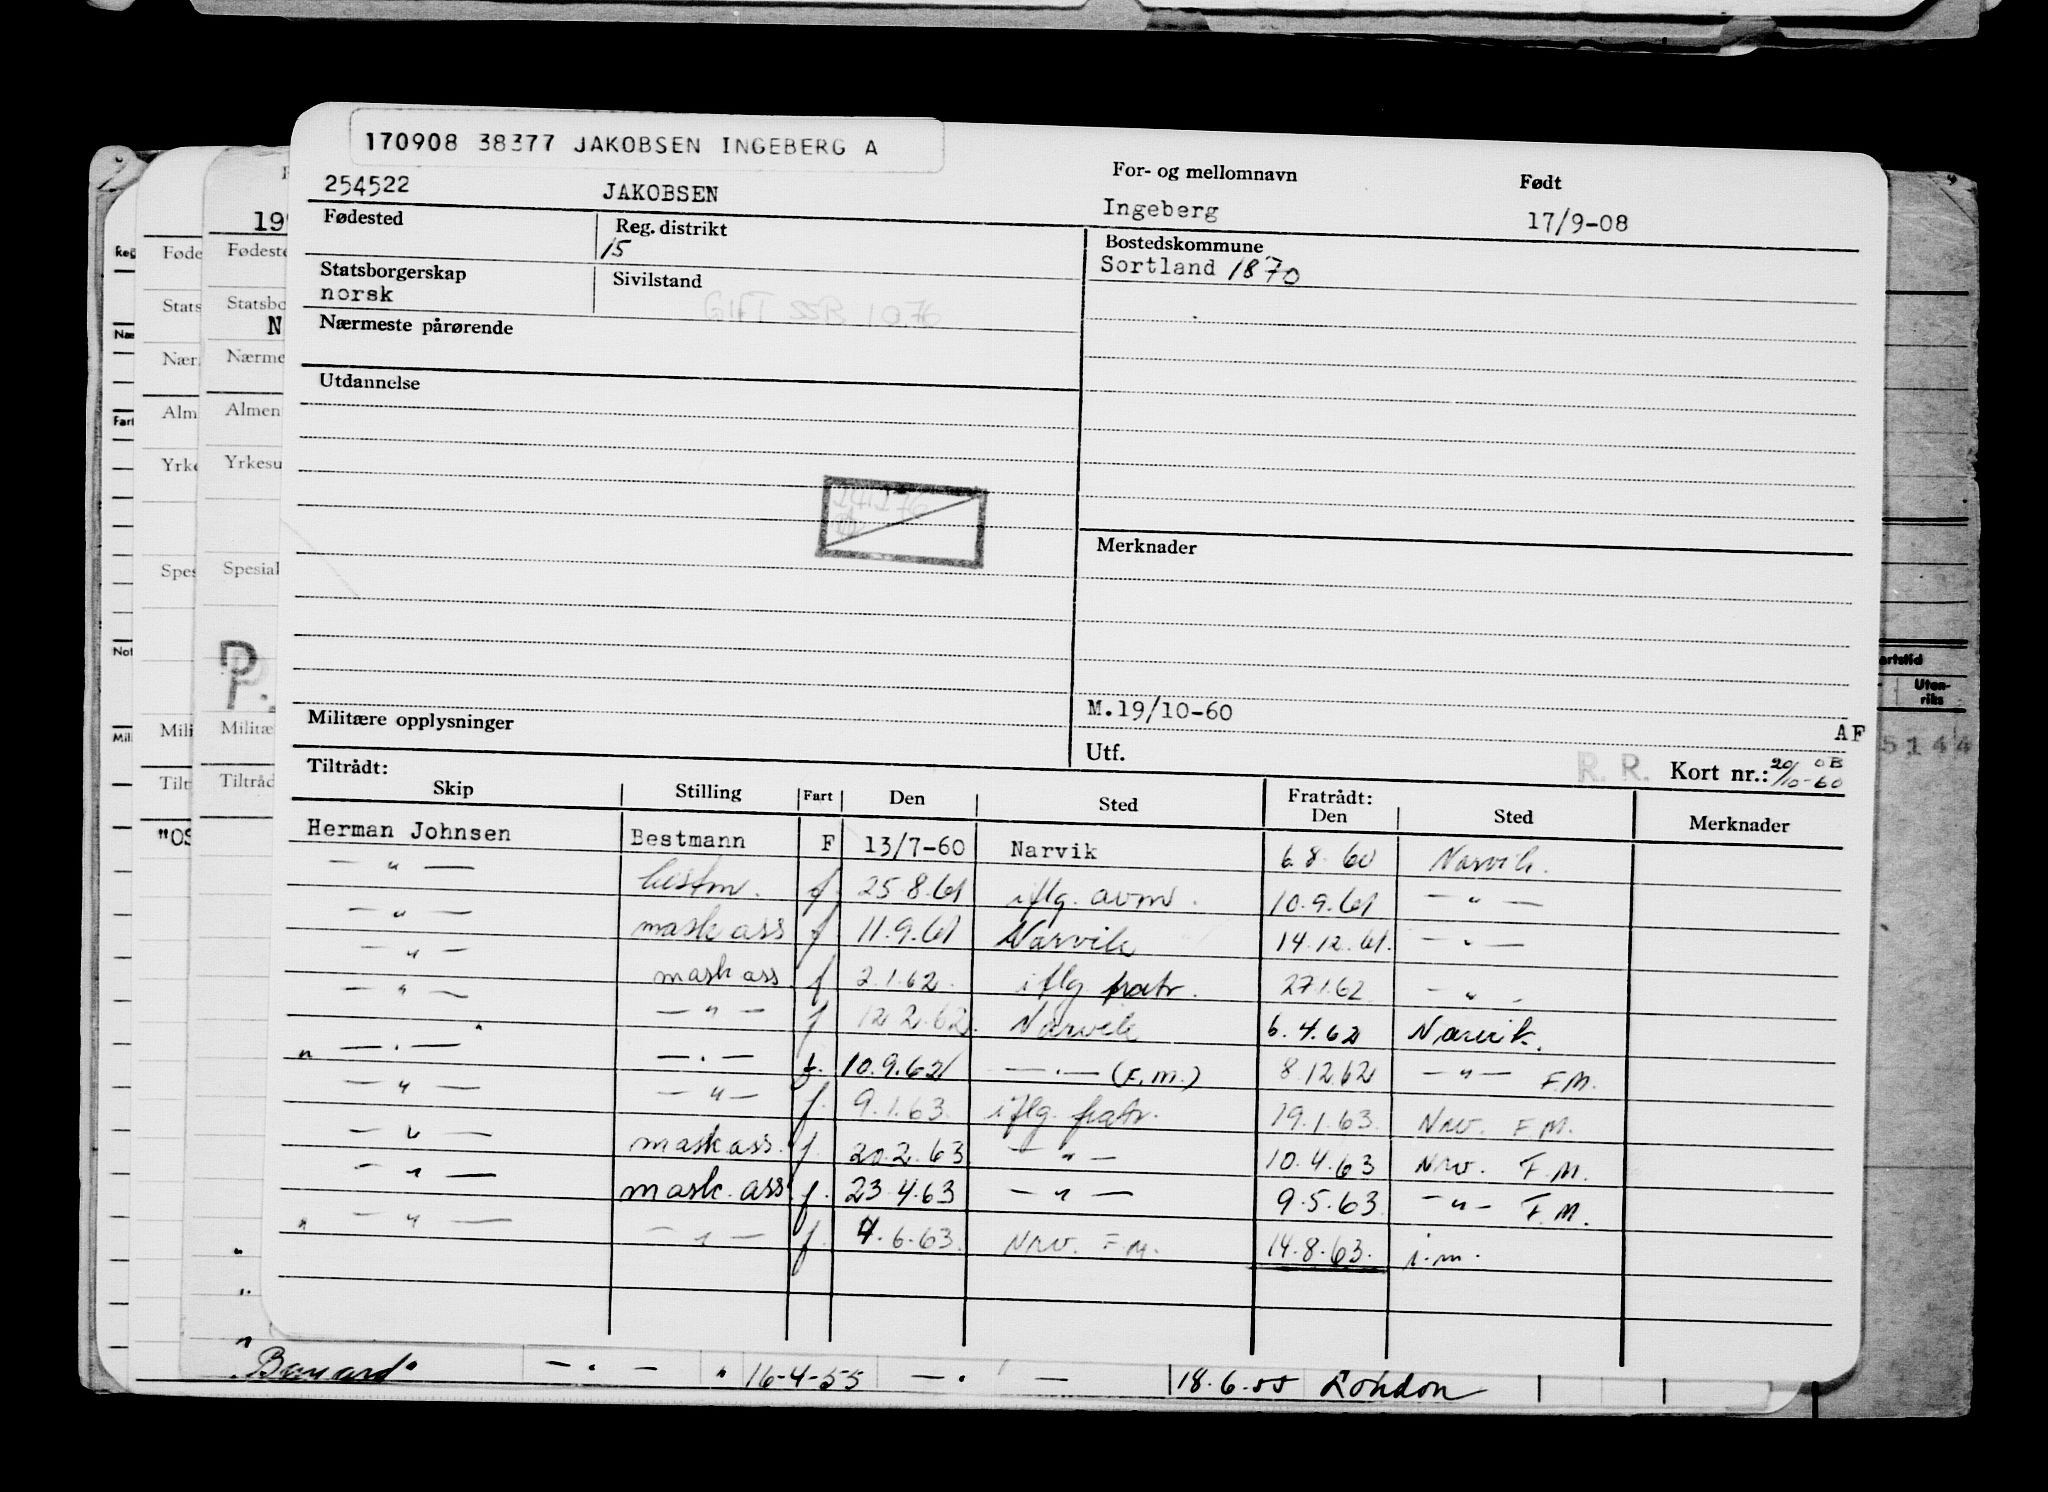 170908 38377 JAKOBSEN INGEBERG A
254522 JAKOBSEN
For- og mellomnavn
Ingeberg
Født
17/9-08
Fødested
Reg. distrikt
15
Bostedskommune
Sortland 1870
Statsborgerskap
norsk
Sivilstand
GIFT SSR 10.76
Nærmeste pårørende
Utdannelse
Merknader
M.19/10-60
AF
Militære opplysninger
Utf.
R. R. Kort nr.: 20/10-60 OB
Tiltrådt:
Skip Stilling Fart Den Sted Fratrådt: Den Sted Merknader
Herman Johnsen Bestmann F 13/7-60 Narvik 6.8.60 Narvik.
— " — bestm. f 25.8.61 iflg. avm. 10.9.61 — " —
— " — mask ass f 11.9.61 Narvik 14.12.61. — " —
— " — mask ass f 2.1.62. iflg fratr. 27.1.62 — " —
— " — — " — f 12.2.62. Narvik 6.4.62 Narvik.
" — . — — . — f. 10.9.62 — . — (F.M.) 8.12.62 — " — F.M.
— " — — " — f. 9.1.63. iflg. fratr. 19.1.63. Nrv. F.M.
— " — mask ass. f. 20.2.63 — " — 10.4.63 Nrv. F.M.
— " — mask. ass. f. 23.4.63 — " — 9.5.63. — " — F.M.
" — " — — " — f. 4.6.63. Nrv. F.M. 14.8.63. i.m.
— . — " 16-4-55 — . — 18.6.55 London
Reg
Føde
Stats
Næ
Nær
Alm
Fart
Yrke
Spes
Not
Mili
Mil
Tilt
"OS
19
Fødeste
Statsbo
N
Nærme
Almen
Yrkesu
Spesial
P.
Militæ
Tiltråd
artstid
Uten-
riks
5144